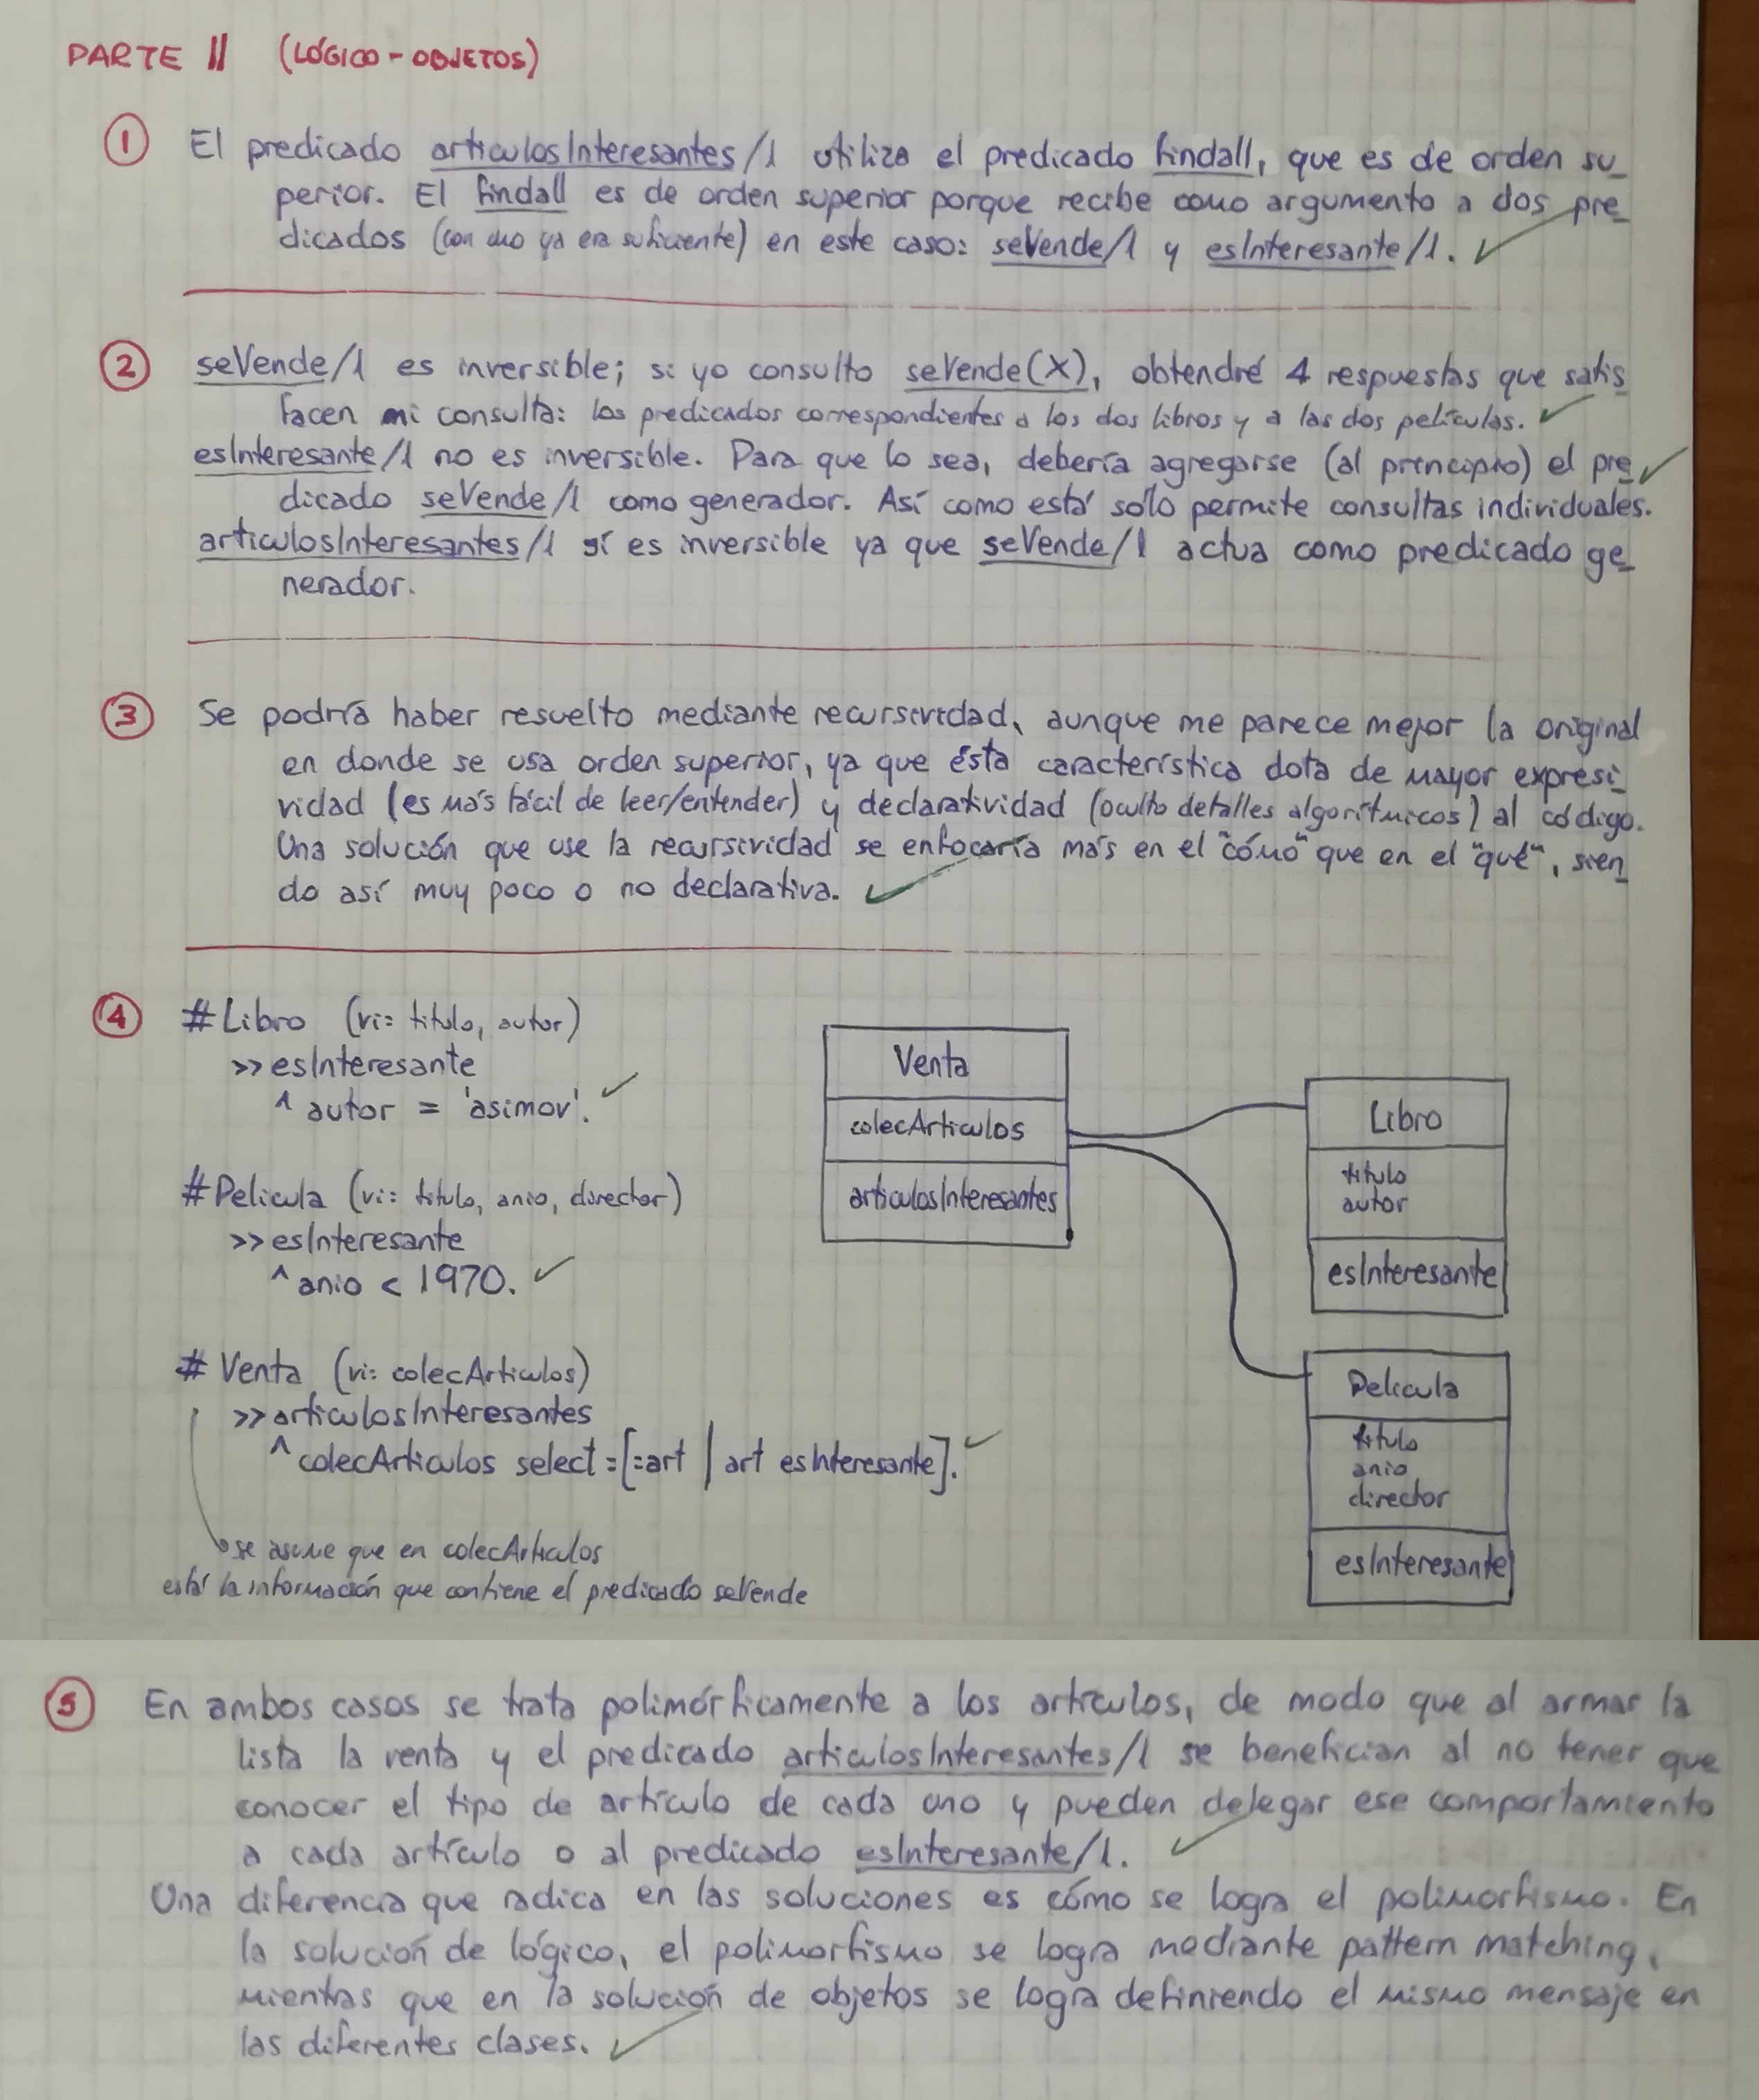 PARTE II (LÓGICO - OBJETOS)
1 El predicado articulosInteresantes/1 utiliza el predicado findall, que es de orden su_
perior. El findall es de orden superior porque recibe como argumento a dos pre_
dicados (con uno ya era suficiente) en este caso: seVende/1 y esInteresante/1.
2 seVende/1 es inversible; si yo consulto seVende(X), obtendré 4 respuestas que satis_
facen mi consulta: los predicados correspondientes a los dos libros y a las dos películas.
esInteresante/1 no es inversible. Para que lo sea, debería agregarse (al principio) el pre_
dicado seVende/1 como generador. Así como está solo permite consultas individuales.
articulosInteresantes/1 sí es inversible ya que seVende/1 actua como predicado ge_
nerador.
3 Se podría haber resuelto mediante recursividad, aunque me parece mejor la original
en donde se usa orden superior, ya que ésta característica dota de mayor expresi_
vidad (es más fácil de leer/entender) y declaratividad (oculto detalles algorítmicos) al código.
Una solución que use la recursividad se enfocaría más en el "cómo" que en el "qué", sien_
do así muy poco o no declarativa.
4 #Libro (vi: titulo, autor)
>> esInteresante
^ autor = 'asimov'.
#Pelicula (vi: titulo, anio, director)
>> esInteresante
^ anio < 1970.
# Venta (vi: colecArticulos)
>> articulosInteresantes
^ colecArticulos select:[:art | art esInteresante].
se asume que en colecArticulos
está la información que contiene el predicado seVende
Venta
colecArticulos
articulosInteresantes
Libro
titulo
autor
esInteresante
Pelicula
titulo
anio
director
esInteresante
5 En ambos casos se trata polimórficamente a los artículos, de modo que al armar la
lista la venta y el predicado articulosInteresantes/1 se benefician al no tener que
conocer el tipo de artículo de cada uno y pueden delegar ese comportamiento
a cada artículo o al predicado esInteresante/1.
Una diferencia que radica en las soluciones es cómo se logra el polimorfismo. En
la solución de lógico, el polimorfismo se logra mediante pattern matching,
mientras que en la solución de objetos se logra definiendo el mismo mensaje en
las diferentes clases.